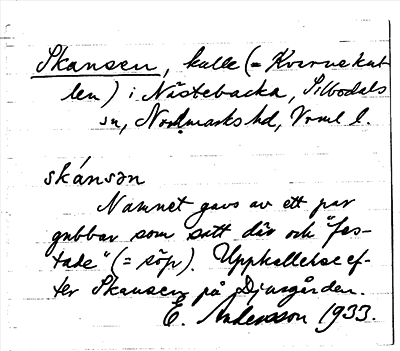 Skansen, kulle (= Kvarnekul
len) i Nästebacka, Silbodals
sn, Nordmarks hd, Vrml l.
skánsən
Namnet gavs av ett par
gubbar som satt där och "fes-
tade" (= söp). Uppkallelse ef-
ter Skansen på Djurgården.
E. Andersson 1933.